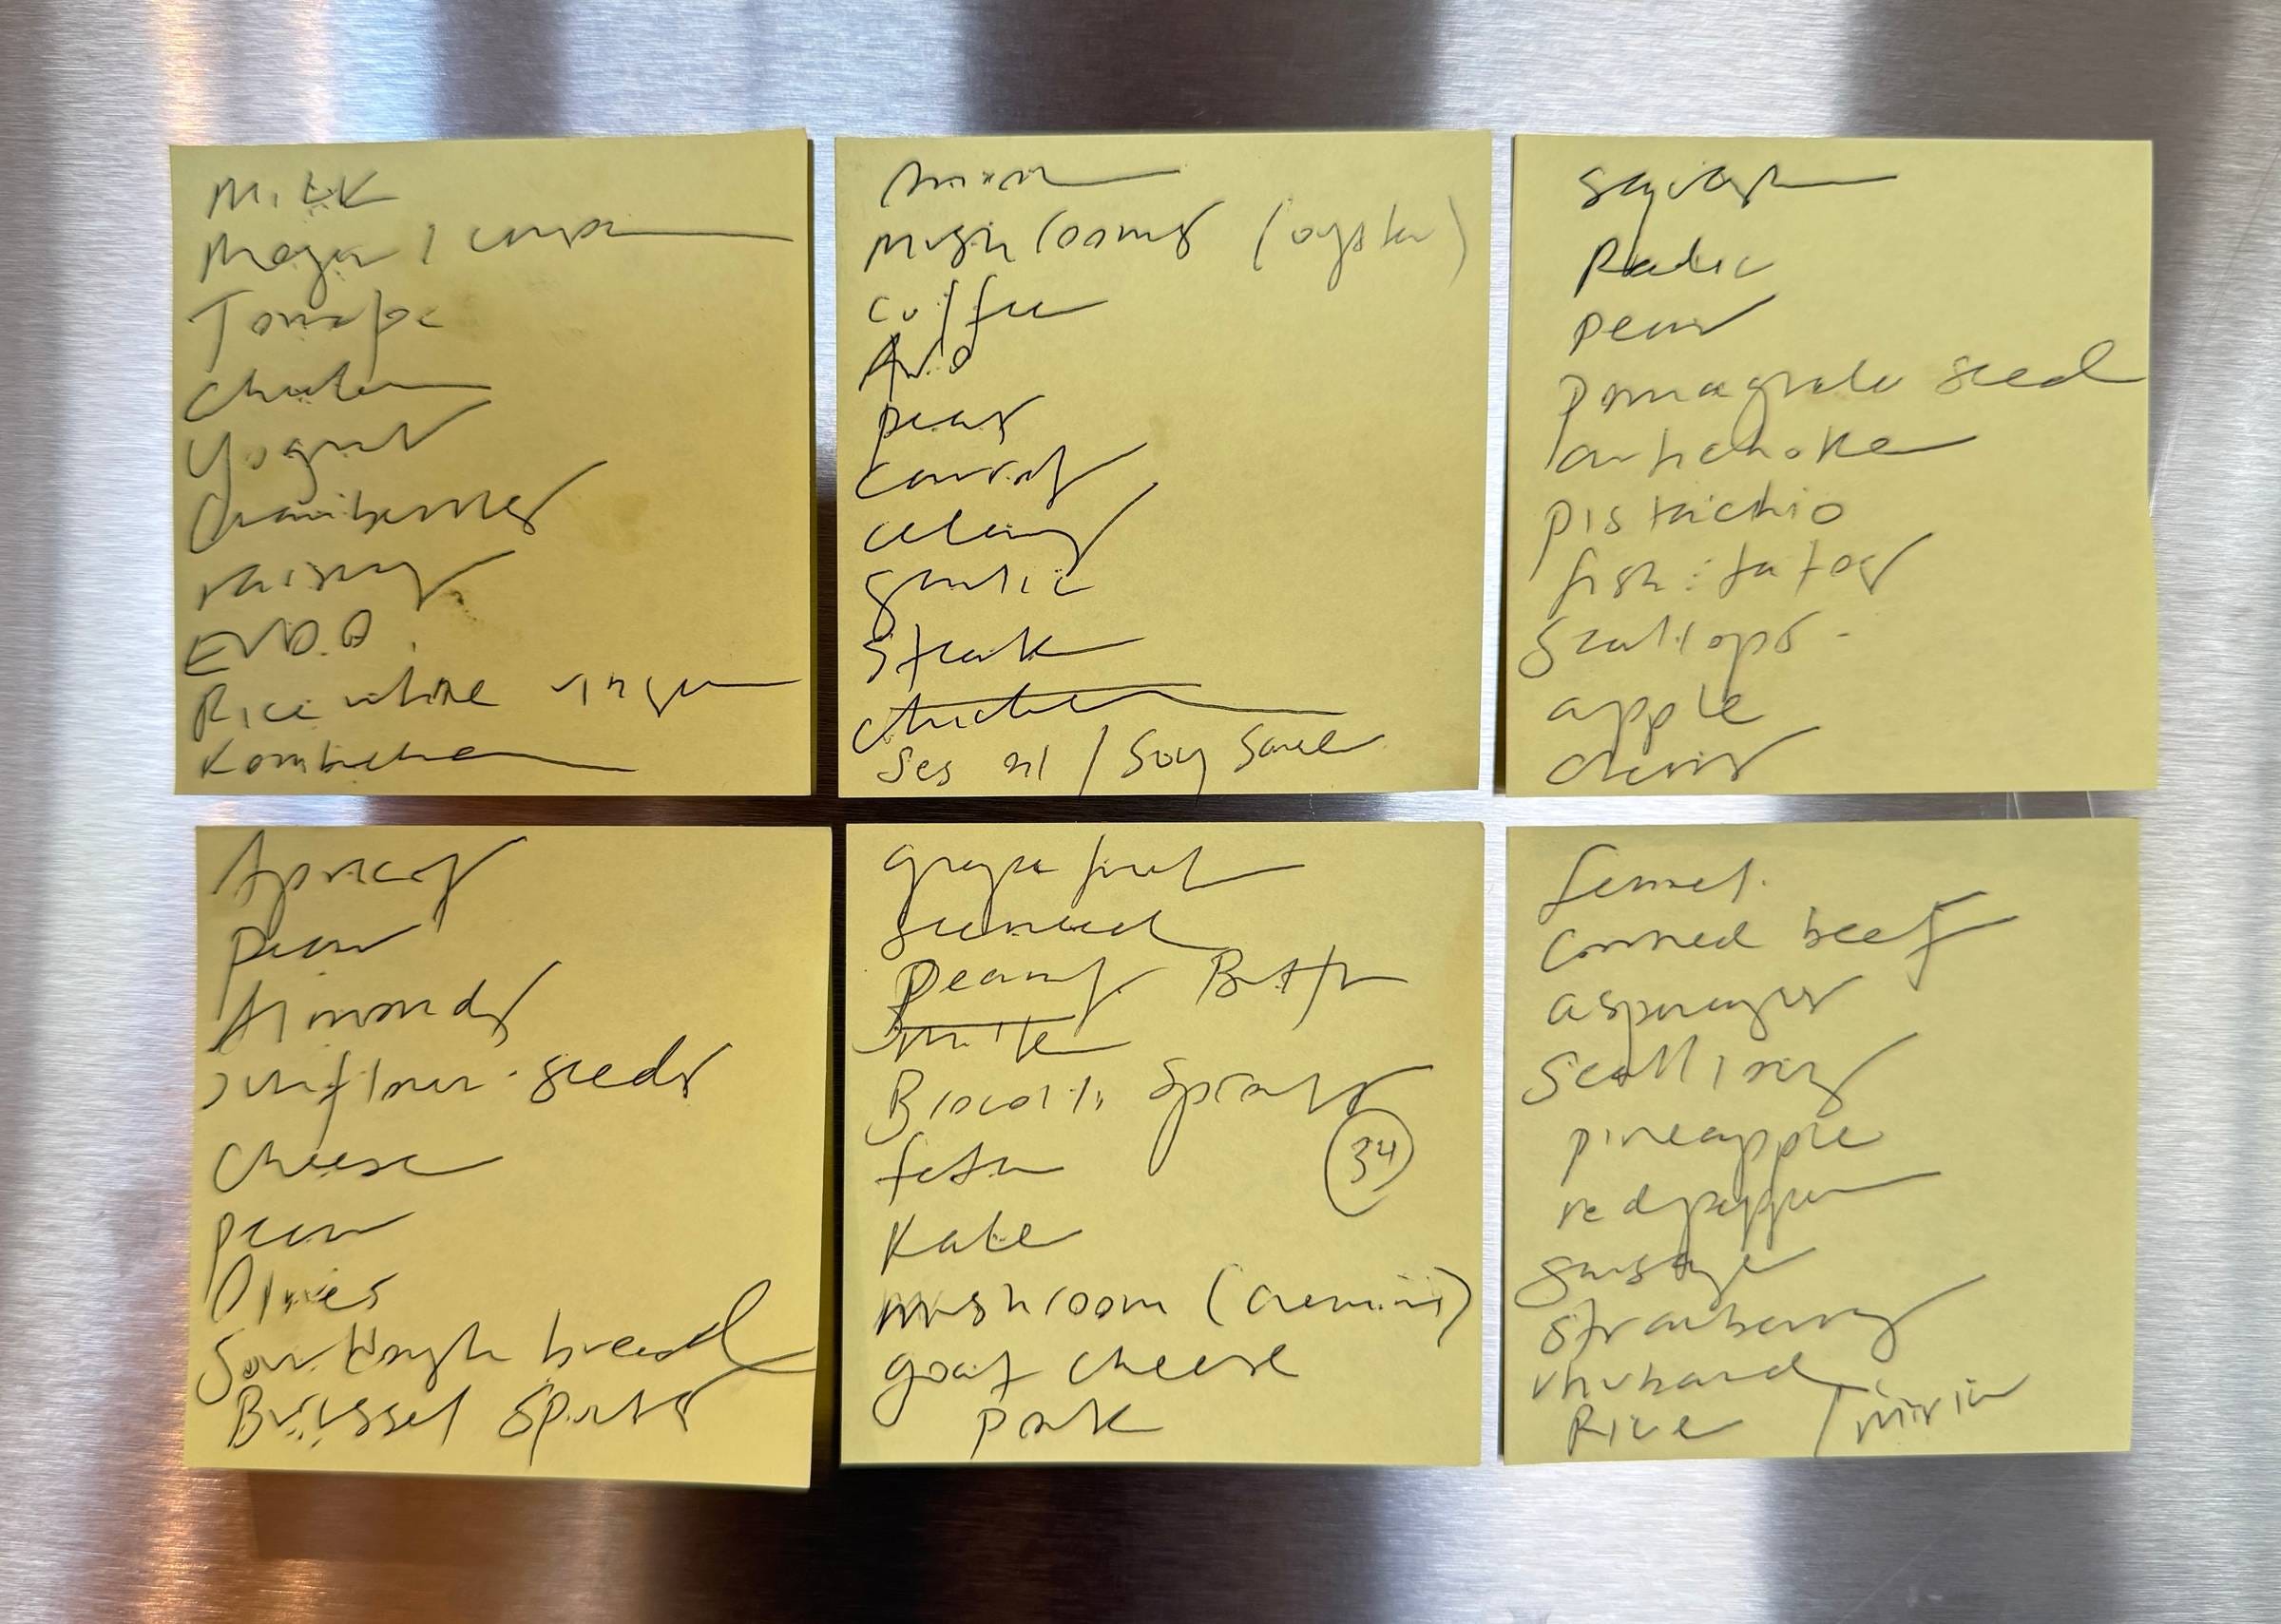 Milk
Tomato
Chicken
Yogurt
Cranberries
raisins
EVOO
Rice wine vinegar
Kombucha
onion
Mushrooms (oyster)
coffee
Avo
peas
carrot
celery
garlic
Steak
chicken
Ses oil / Soy Sauce
Squash
pear
Pomagrate seed
artichoke
pistaichio
fish: tatos
Scallops
apple
Apricot
Almonds
sunflower seeds
Cheese
Olives
Sourdough bread
Brussel Sprouts
grapefruit
seaweed
Peanut Butter
milk
Brocolli Sprouts
34
feta
Kale
mushroom (cremini)
goat cheese
Pork
fennel
corned beef
asparagus
Scallions
pineapple
red pepper
sausage
strawberry
rhubarb
Rice / mirin